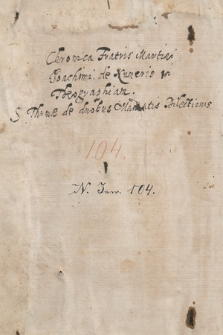 Chronica Fratris Martini
Joachimi de Numeris in
Geographiam.
S. Thomæ de duobus Mandatis Dilectionis
104.
N. Inv. 104.